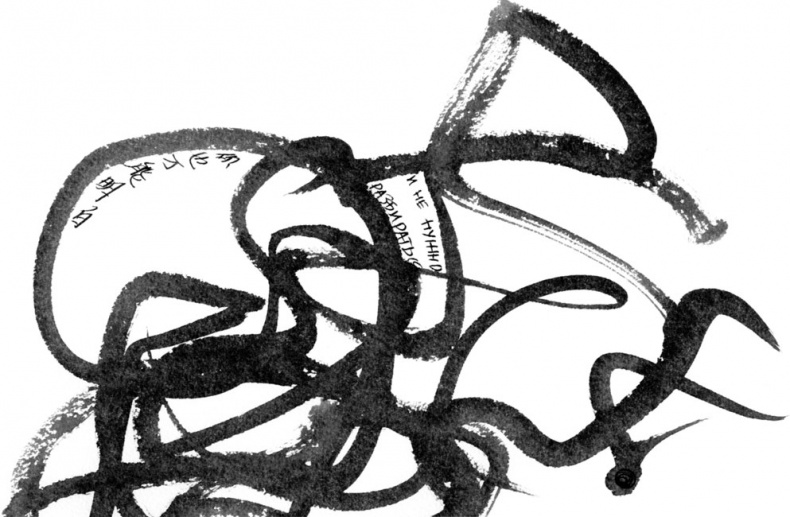 也不能明白
И НЕ НУЖНО
РАЗБИРАТЬС